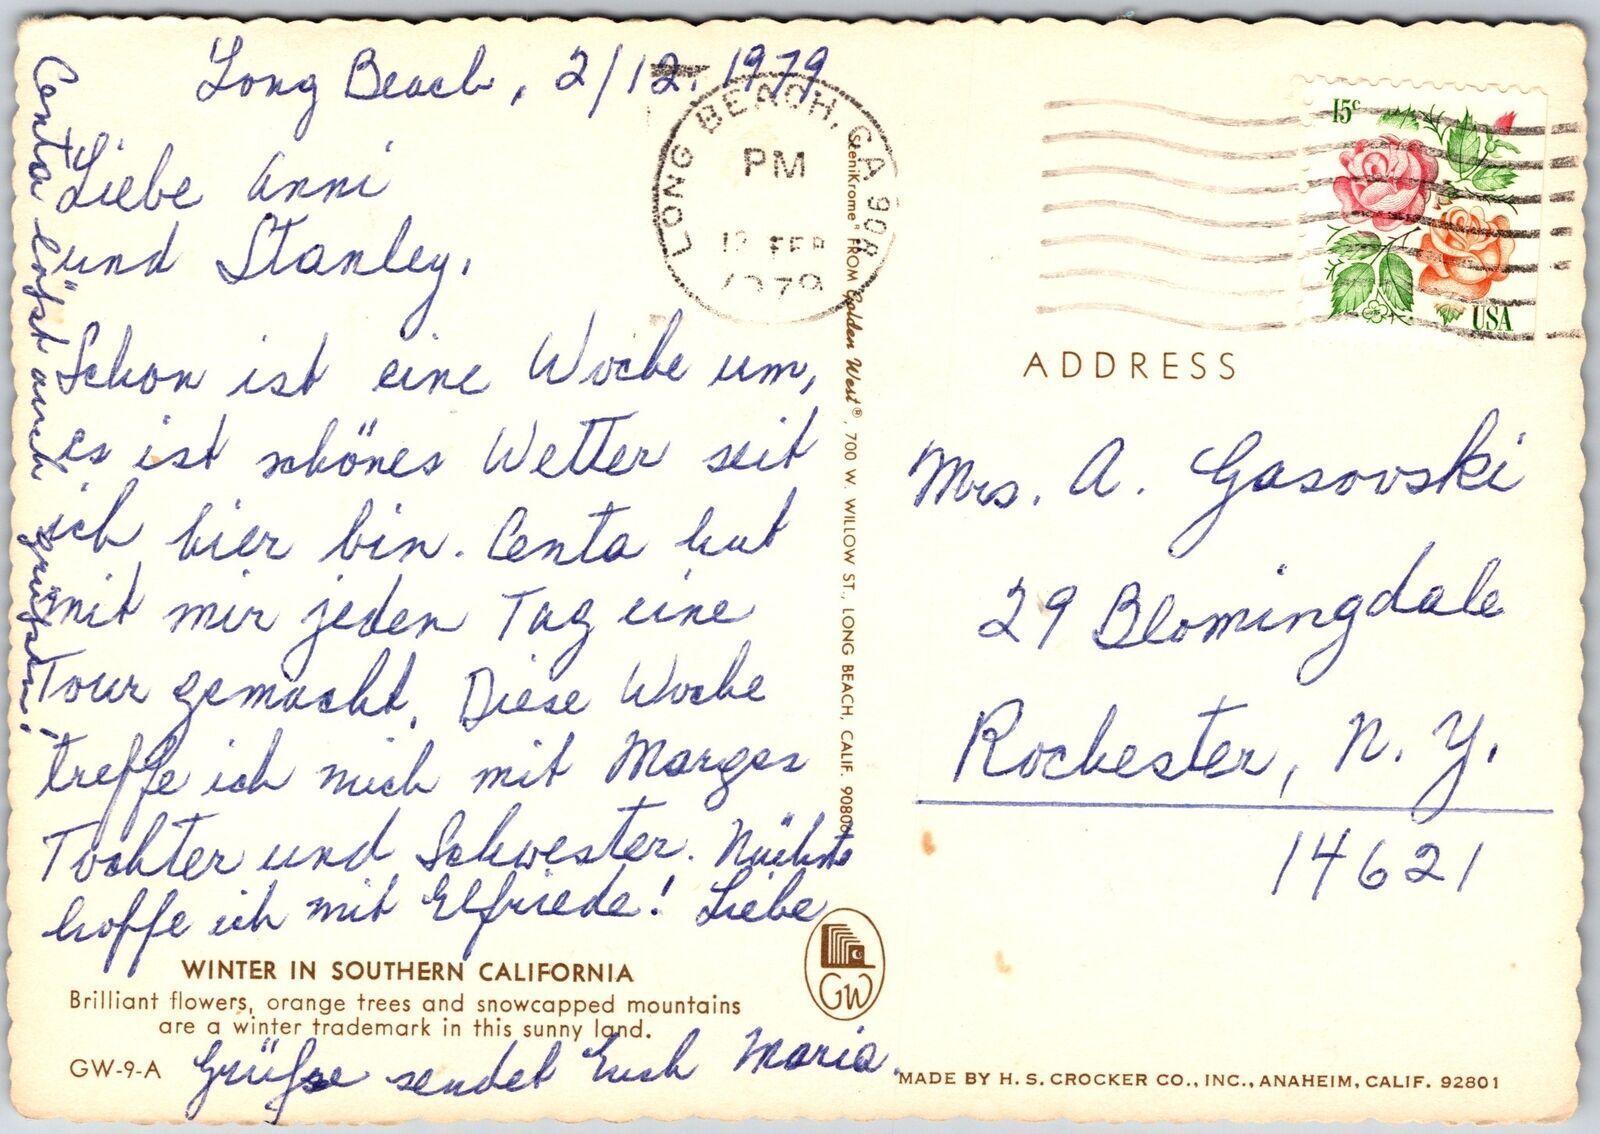 Long Beach, 2/12. 1979
Liebe Anni
und Stanley.
Schon ist eine Woche um,
es ist schönes Wetter seit
ich hier bin. Centa hat
mit mir jeden Tag eine
Tour gemacht. Diese Woche
treffe ich mich mit Margas
Tochter und Schwester.
hoffe ich mit Elfriede! Liebe
Grüße sendet Euch Maria.
Centa läßt auch grüßen!
WINTER IN SOUTHERN CALIFORNIA
Brilliant flowers, orange trees and snowcapped mountains
are a winter trademark in this sunny land.
GW-9-A
GW
GleniKrome® FROM Golden West®, 700 W. WILLOW ST., LONG BEACH, CALIF. 90806
LONG BEACH, CA
PM
12 FEB
1979
15c
USA
ADDRESS
Mrs. A. Gasovski
29 Blomingdale
Rochester, N.Y.
14621
MADE BY H. S. CROCKER CO., INC., ANAHEIM, CALIF. 92801